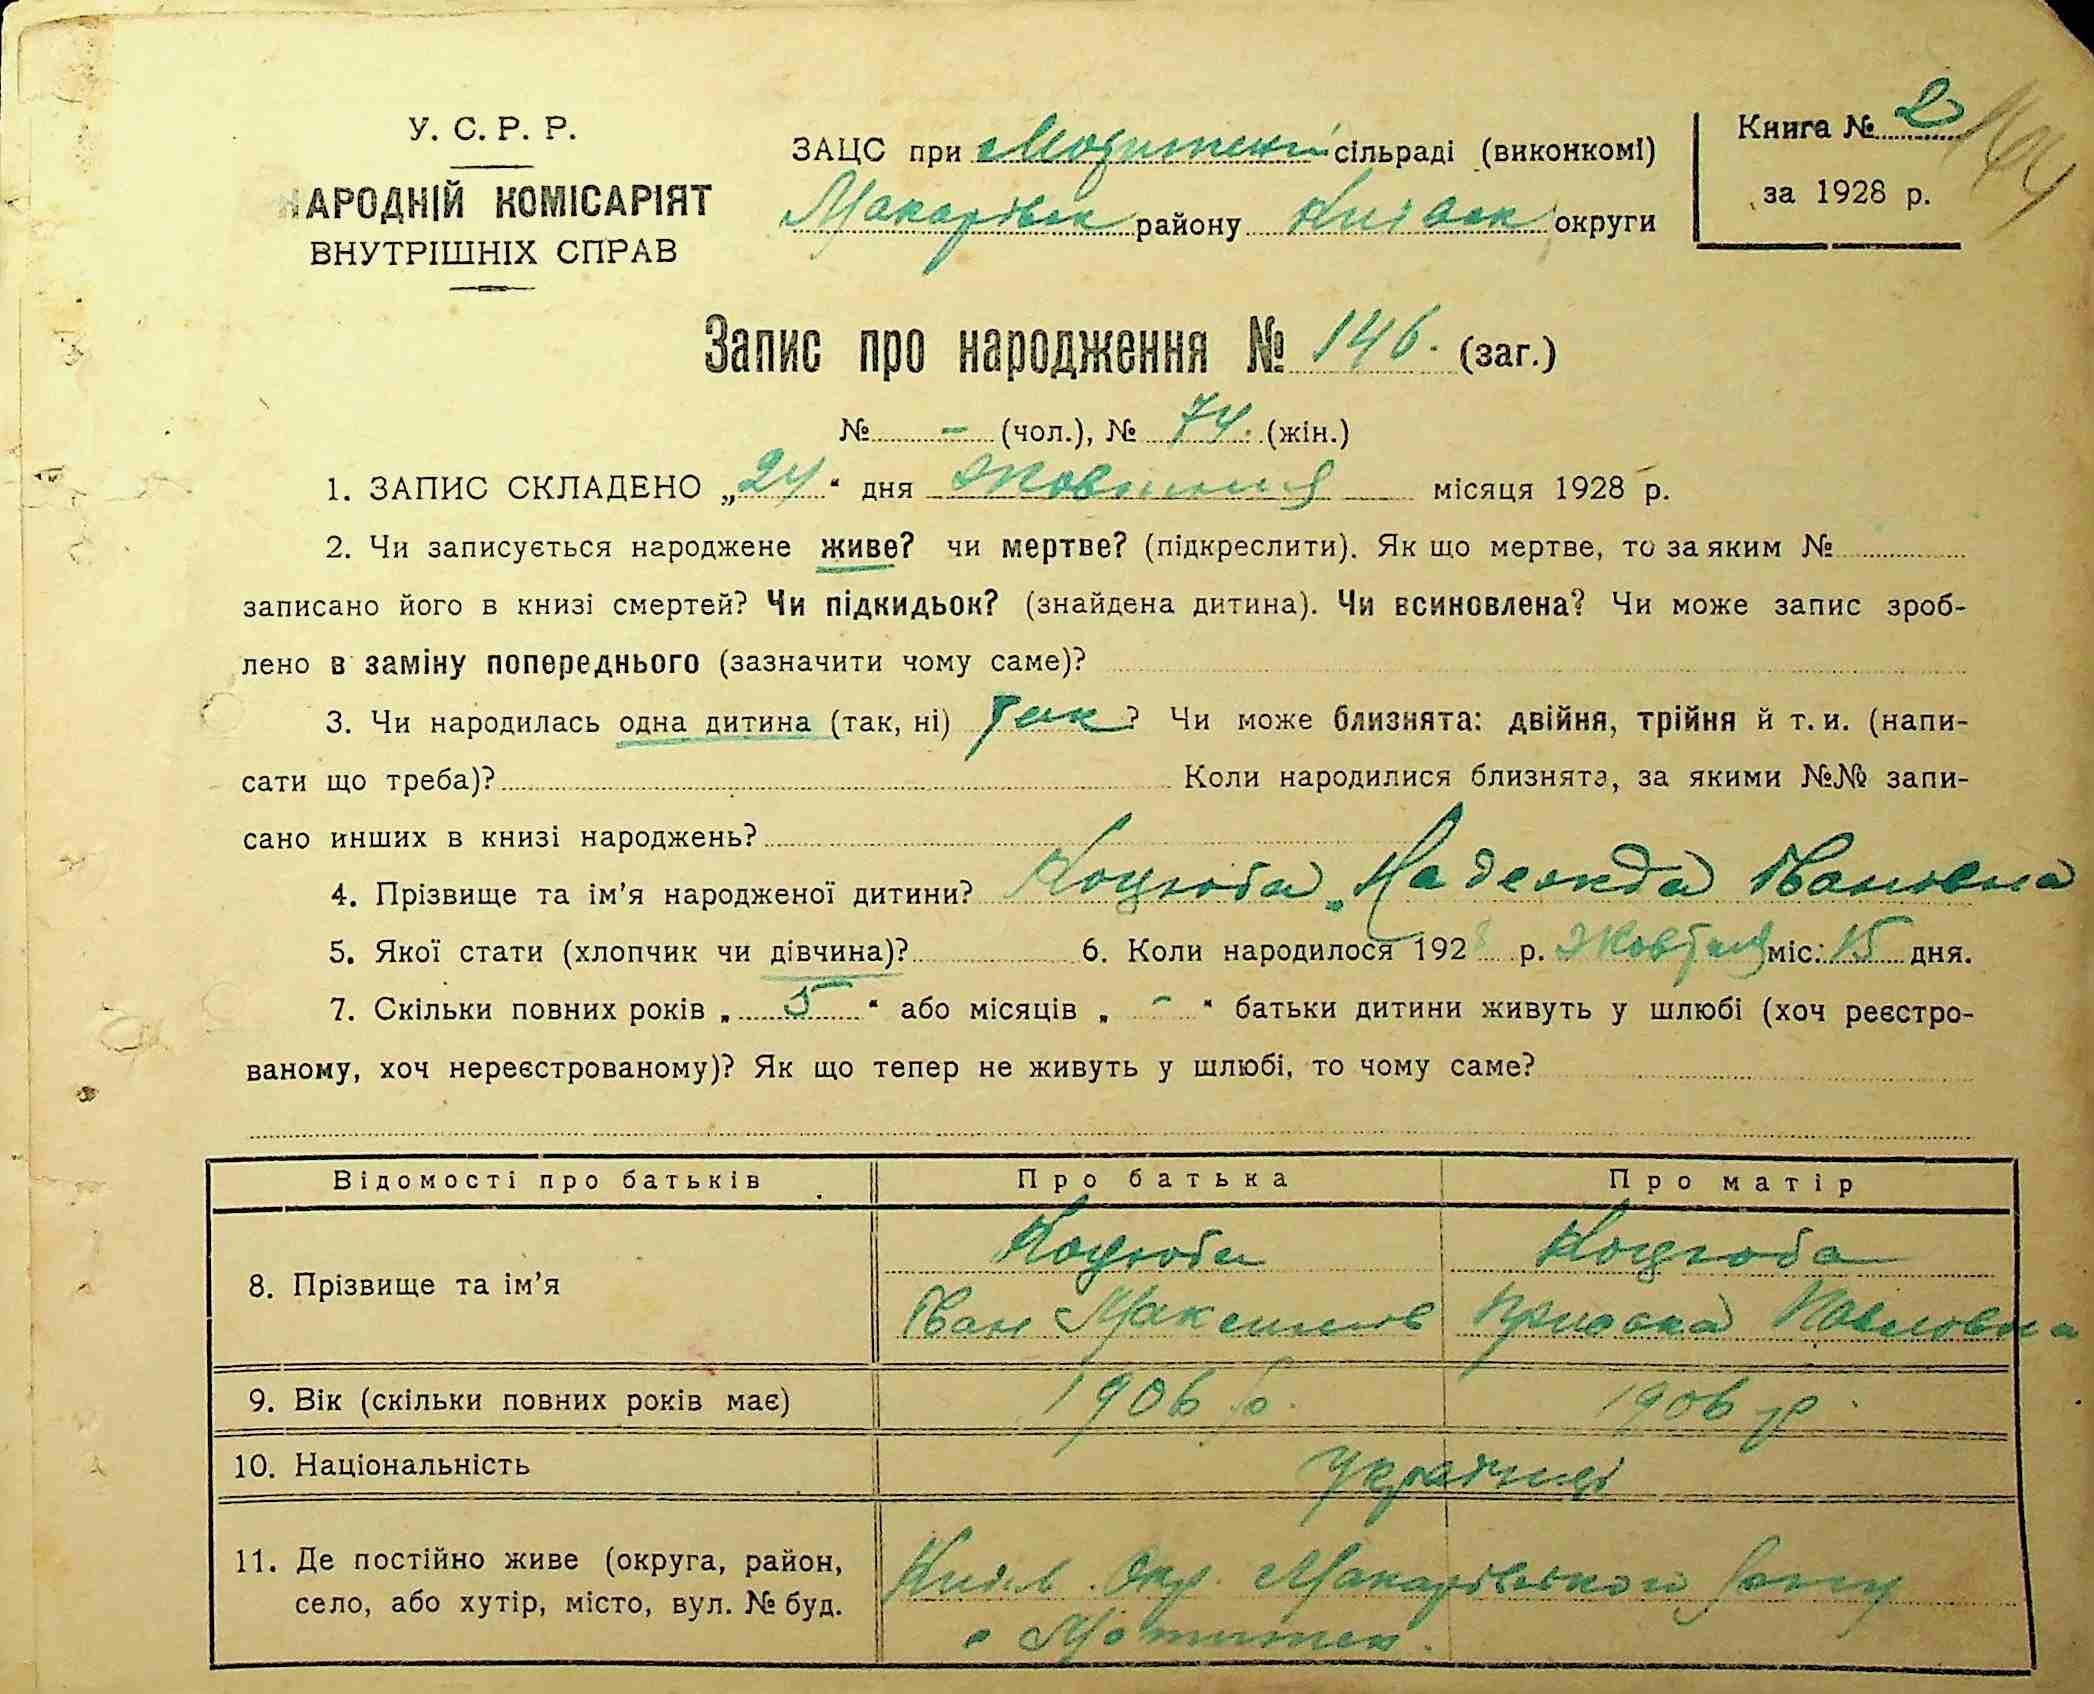 У. С. Р. Р.
НАРОДНІЙ КОМІСАРІЯТ
ВНУТРІШНІХ СПРАВ
ЗАЦС при сільраді (виконкомі)
Макарівськ району Київськ округи
Книга № 2
за 1928 р.
Запис про народження № 146. (заг.)
№ - (чол.), № 74. (жін.)
1. ЗАПИС СКЛАДЕНО „24“ дня Жовтня місяця 1928 р.
2. Чи записується народжене живе? чи мертве? (підкреслити). Як що мертве, то за яким №
записано його в книзі смертей? Чи підкидьок? (знайдена дитина). Чи всиновлена? Чи може запис зроб-
лено в заміну попереднього (зазначити чому саме)?
3. Чи народилась одна дитина (так, ні) так? Чи може близнята: двійня, трійня й т. и. (напи-
сати що треба)? Коли народилися близнята, за якими №№ запи-
сано инших в книзі народжень?
4. Прізвище та ім’я народженої дитини? Коцюба Надежда Івановна
5. Якої стати (хлопчик чи дівчина)? 6. Коли народилося 1928 р. Жовтня міс. 15 дня.
7. Скільки повних років „5“ або місяців „-“ батьки дитини живуть у шлюбі (хоч реєстро-
ваному, хоч нереєстрованому)? Як що тепер не живуть у шлюбі, то чому саме?
Відомості про батьків Про батька Про матір
8. Прізвище та ім’я
Коцюба Коцюба
Іван Максимов Павловна
9. Вік (скільки повних років має) 1906 р. 1906 р.
10. Національність Українці
11. Де постійно живе (округа, район,
село, або хутір, місто, вул. № буд.
Окр. Макарівського
с